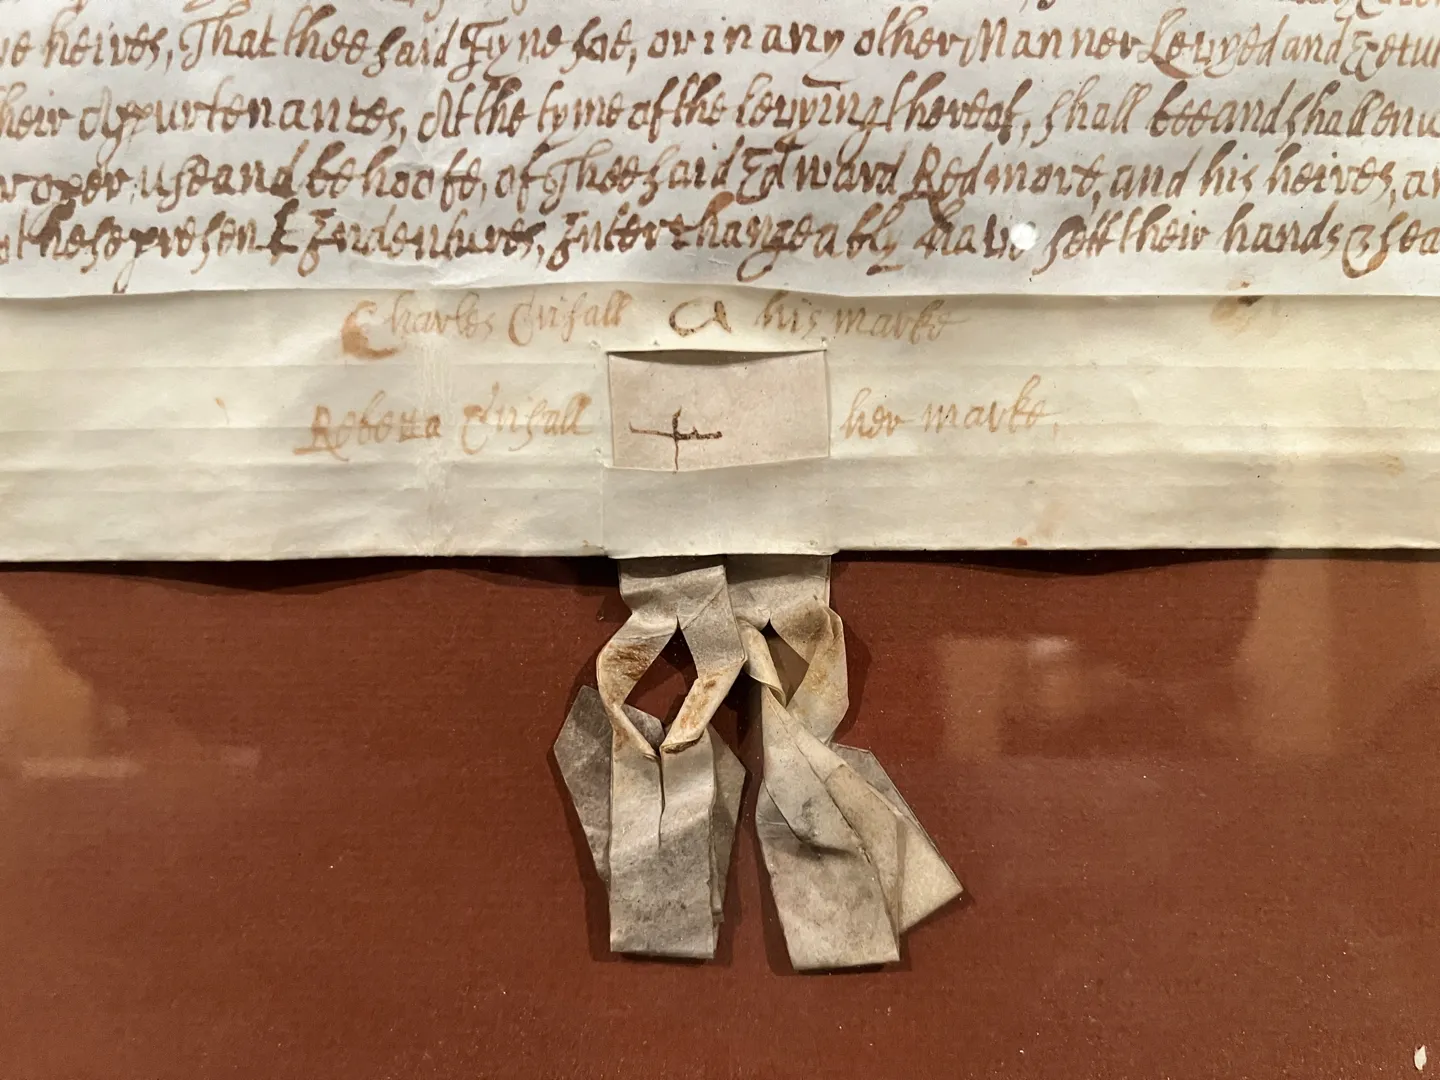 heires, That thee said Fyne soe, or in any other Manner Levyed and
their Appurtenances, At the tyme of the levying thereof, shall bee and shall enu
proper, use and behoofe, of Thee said Edward Redmore, and his heires, an
these present Indentures, Interchangeably have sett their hands & sea
Charles his marke
Rebecca her marke.